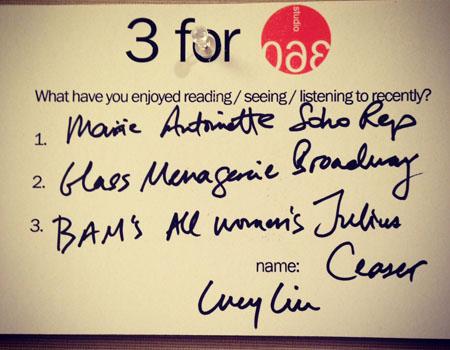 3 for studio 360
What have you enjoyed reading / seeing / listening to recently?
1. Marie Antoinette Soho Rep
2. Glass Menagerie Broadway
3. BAM's All women's Julius
name: Ceaser
Lucy Liu